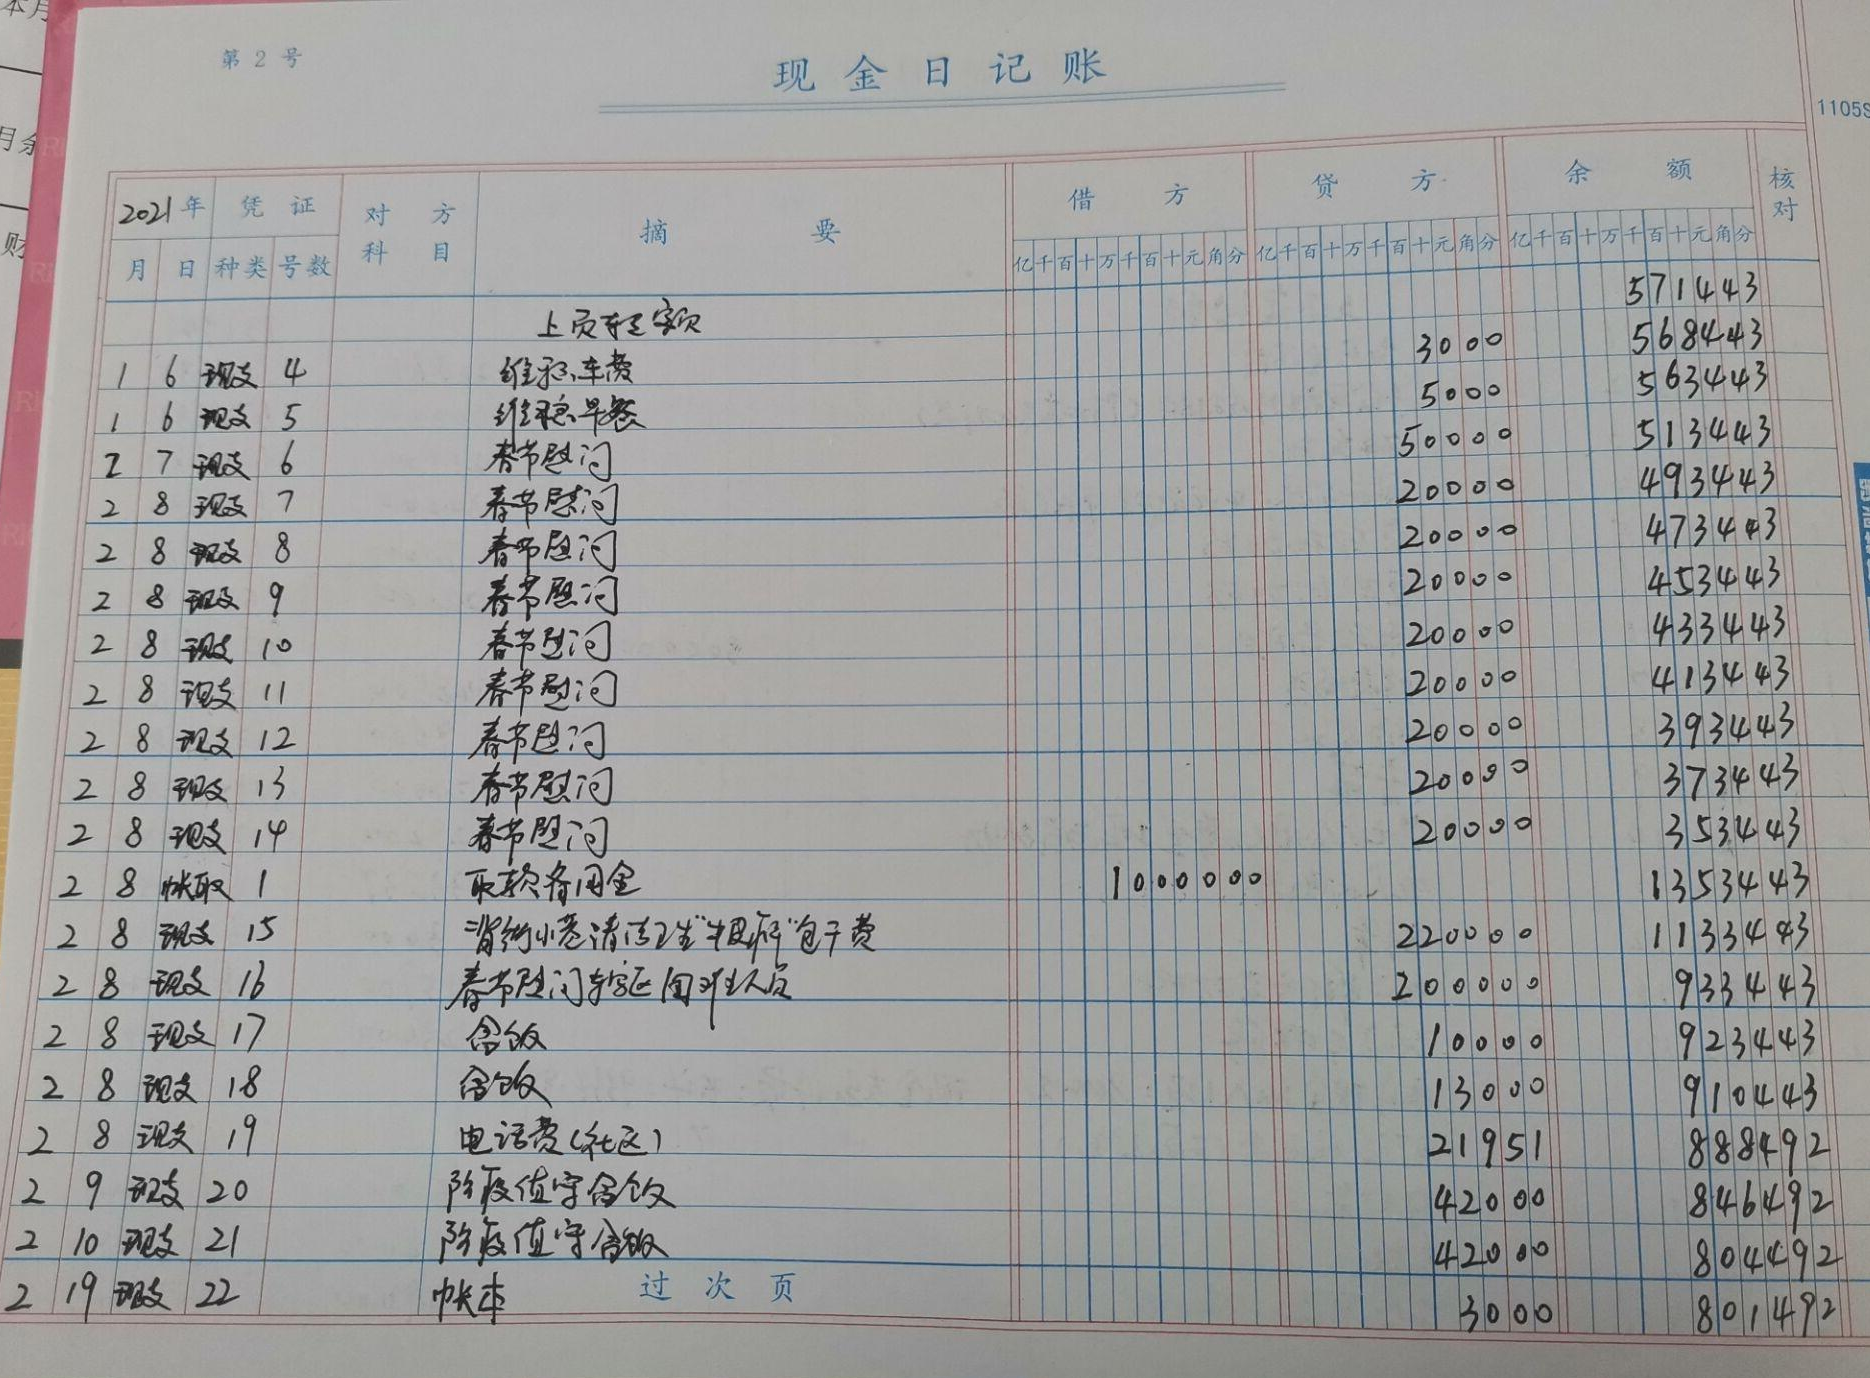 第 2 号
现金日记账
1105S
2021年 凭证 对方科目 摘要 借方 贷方 余额 核对
月 日 种类 号数 亿千百十万千百十元角分 亿千百十万千百十元角分 亿千百十万千百十元角分
上页 571443
1 6 现支 4 维稳车费 3000 568443
1 6 现支 5 维稳早餐 5000 563443
2 7 现支 6 春节慰问 50000 513443
2 8 现支 7 春节慰问 20000 493443
2 8 现支 8 春节慰问 20000 473443
2 8 现支 9 春节慰问 20000 453443
2 8 现支 10 春节慰问 20000 433443
2 8 现支 11 春节慰问 20000 413443
2 8 现支 12 春节慰问 20000 393443
2 8 现支 13 春节慰问 20000 373443
2 8 现支 14 春节慰问 20000 353443
2 8 帐取 1 取款备用金 1000000 1353443
2 8 现支 15 背街小巷清洁卫生“牛皮癣”包干费 220000 1133443
2 8 现支 16 春节慰问辖区困难人员 200000 933443
2 8 现支 17 盒饭 10000 923443
2 8 现支 18 盒饭 13000 910443
2 8 现支 19 电话费(社区) 21951 888492
2 9 现支 20 防疫值守盒饭 42000 846492
2 10 现支 21 防疫值守盒饭 42000 804492
2 19 现支 22 帐本 过次页 3000 801492